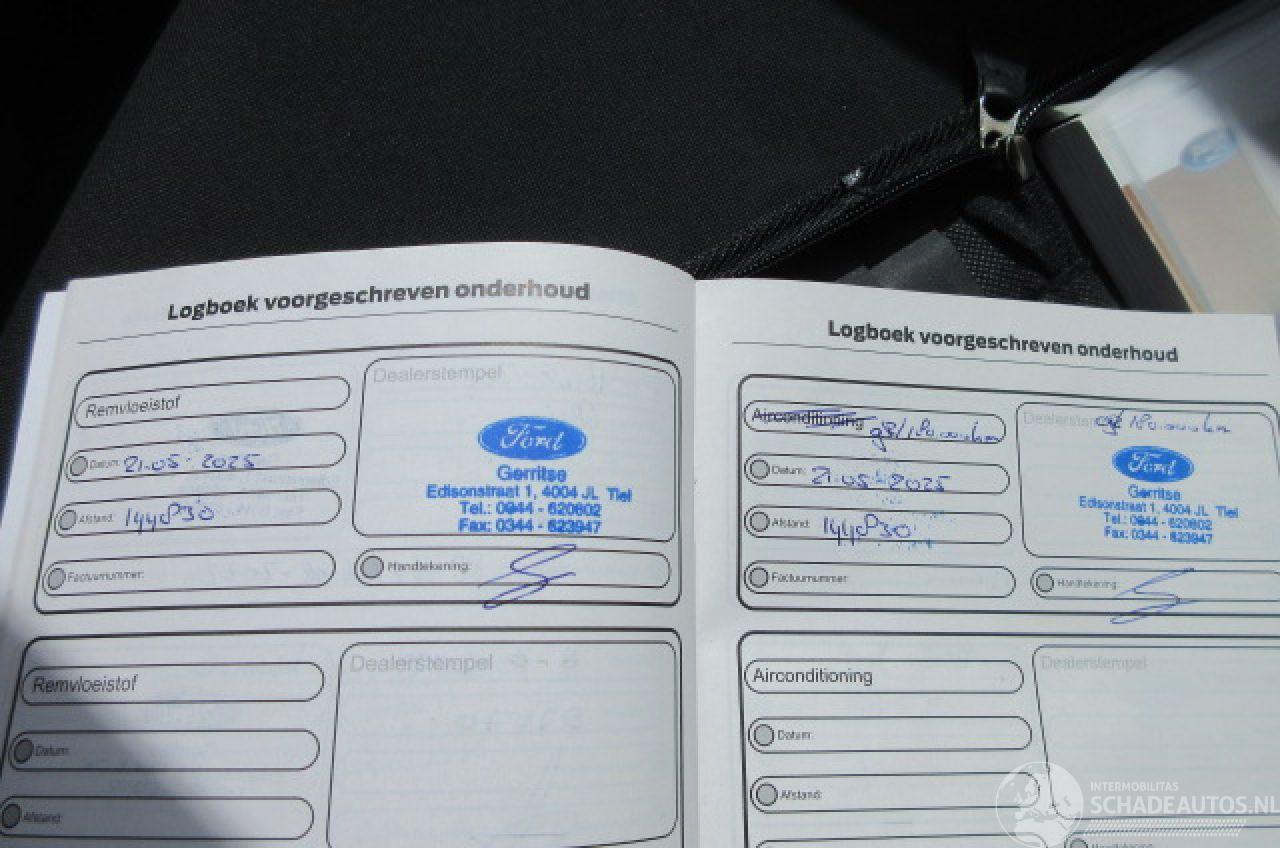 Logboek voorgeschreven onderhoud
Remvloeistof
Datum: 21-05-2025
Afstand: 144830
Factuurnummer:
Dealerstempel
Ford
Gerritse
Edisonstraat 1, 4004 JL Tiel
Tel.: 0344 - 620602
Fax: 0344 - 623947
Handtekening:
Remvloeistof
Datum:
Afstand:
Dealerstempel
Logboek voorgeschreven onderhoud
Airconditioning
Datum: 21-05-2025
Afstand: 144830
Factuurnummer:
180.000km
Ford
Gerritse
Edisonstraat 1, 4004 JL Tiel
Tel.: 0344 - 620602
Fax: 0344 - 623947
Handtekening:
Airconditioning
Datum:
Afstand:
Dealerstempel
INTERMOBILITAS
SCHADEAUTOS.NL